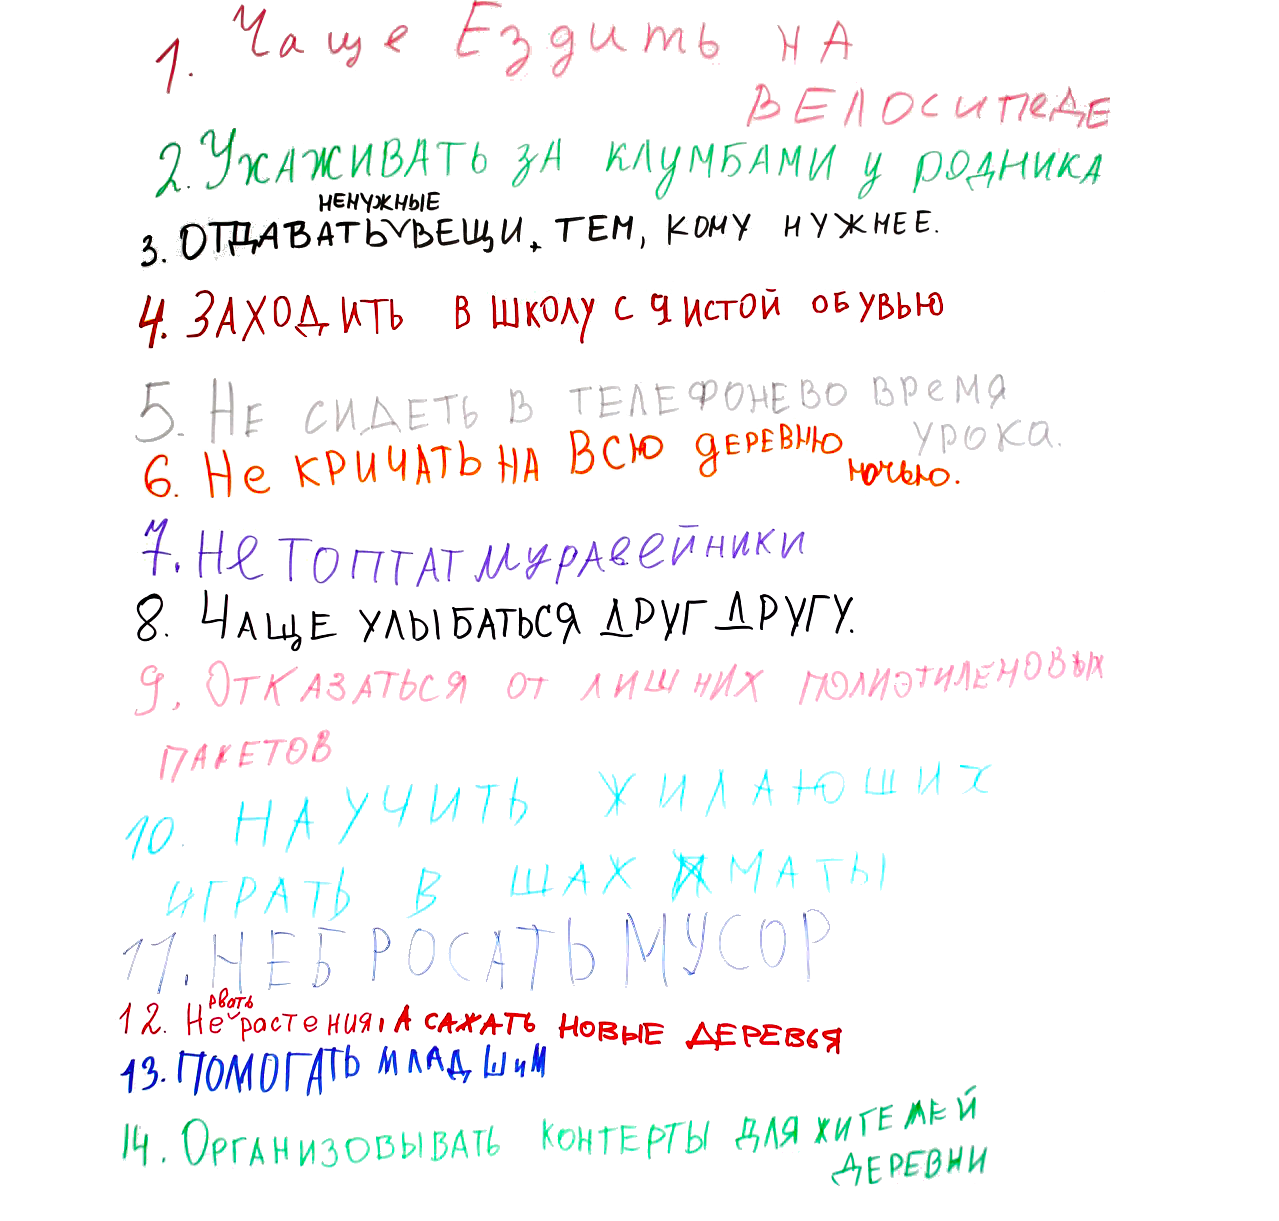 1. Чаще Ездить на
велосипеде
2. Ухаживать за клумбами у родника
ненужные
3. Отдавать вещи, тем, кому нужнее.
4. Заходить в школу с чистой обувью
5. Не сидеть в телефоне во время
урока.
6. Не кричать на всю деревню
ночью.
7. Не топтат муравейники
8. Чаще улыбаться друг другу.
9. Отказаться от лишних полиэтиленовых
пакетов
10. Научить жилающих
играть в шахматы
11. Не бросать мусор
рвать
12. Не растения, а сажать новые деревья
13. Помогать младшим
14. Организовывать контерты для жителей
деревни